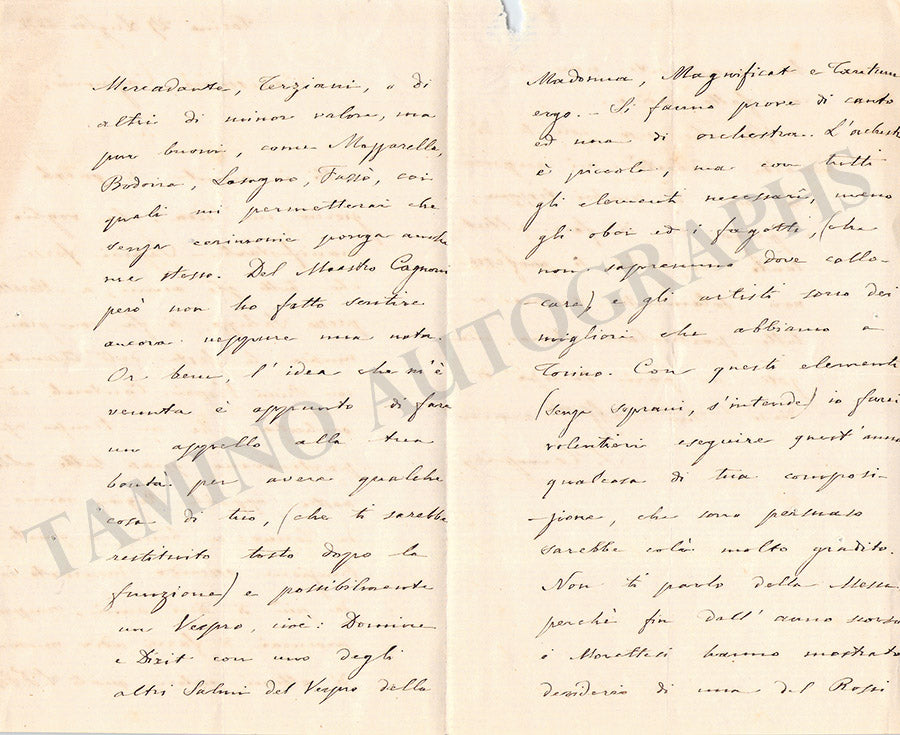 Mercadante, Terziani, o di
altri di minor valore, ma
pur buoni, come Mazzarella,
Bodoira, Fassò, coi
quali mi permetterai che
senza cerimonie ponga anche
me stesso. Del Maestro Cagnoni
però non ho fatto sentire
ancora neppure una nota.
Or bene, l'idea che m'è
venuta è appunto di fare
un appello alla tua
bontà per avere qualche
cosa di tuo, (che ti sarebbe
restituito tosto dopo la
funzione) e possibilmente
un Vespro, cioè: Domine
e Dixit con uno degli
altri Salmi del Vespro della
Madonna, Magnificat e Tantum
ergo. – Si fanno prove di canto
ed una di orchestra. L'orchestra
è piccola, ma con tutti
gli elementi necessarî, meno
gli oboi ed i fagotti, (che
non sapremmo dove collo-
care) e gli artisti sono dei
migliori che abbiamo a
Torino. Con questi elementi
(senza soprani, s'intende) io farei
volentieri eseguire quest'anno
qualcosa di tua composi-
-zione, che sono persuaso
sarebbe colà molto gradito.
Non ti parlo della Messa
perchè fin dall'anno scorso
i Morettesi hanno mostrato
desiderio di una del Rossi
TAMINO AUTOGRAPHS